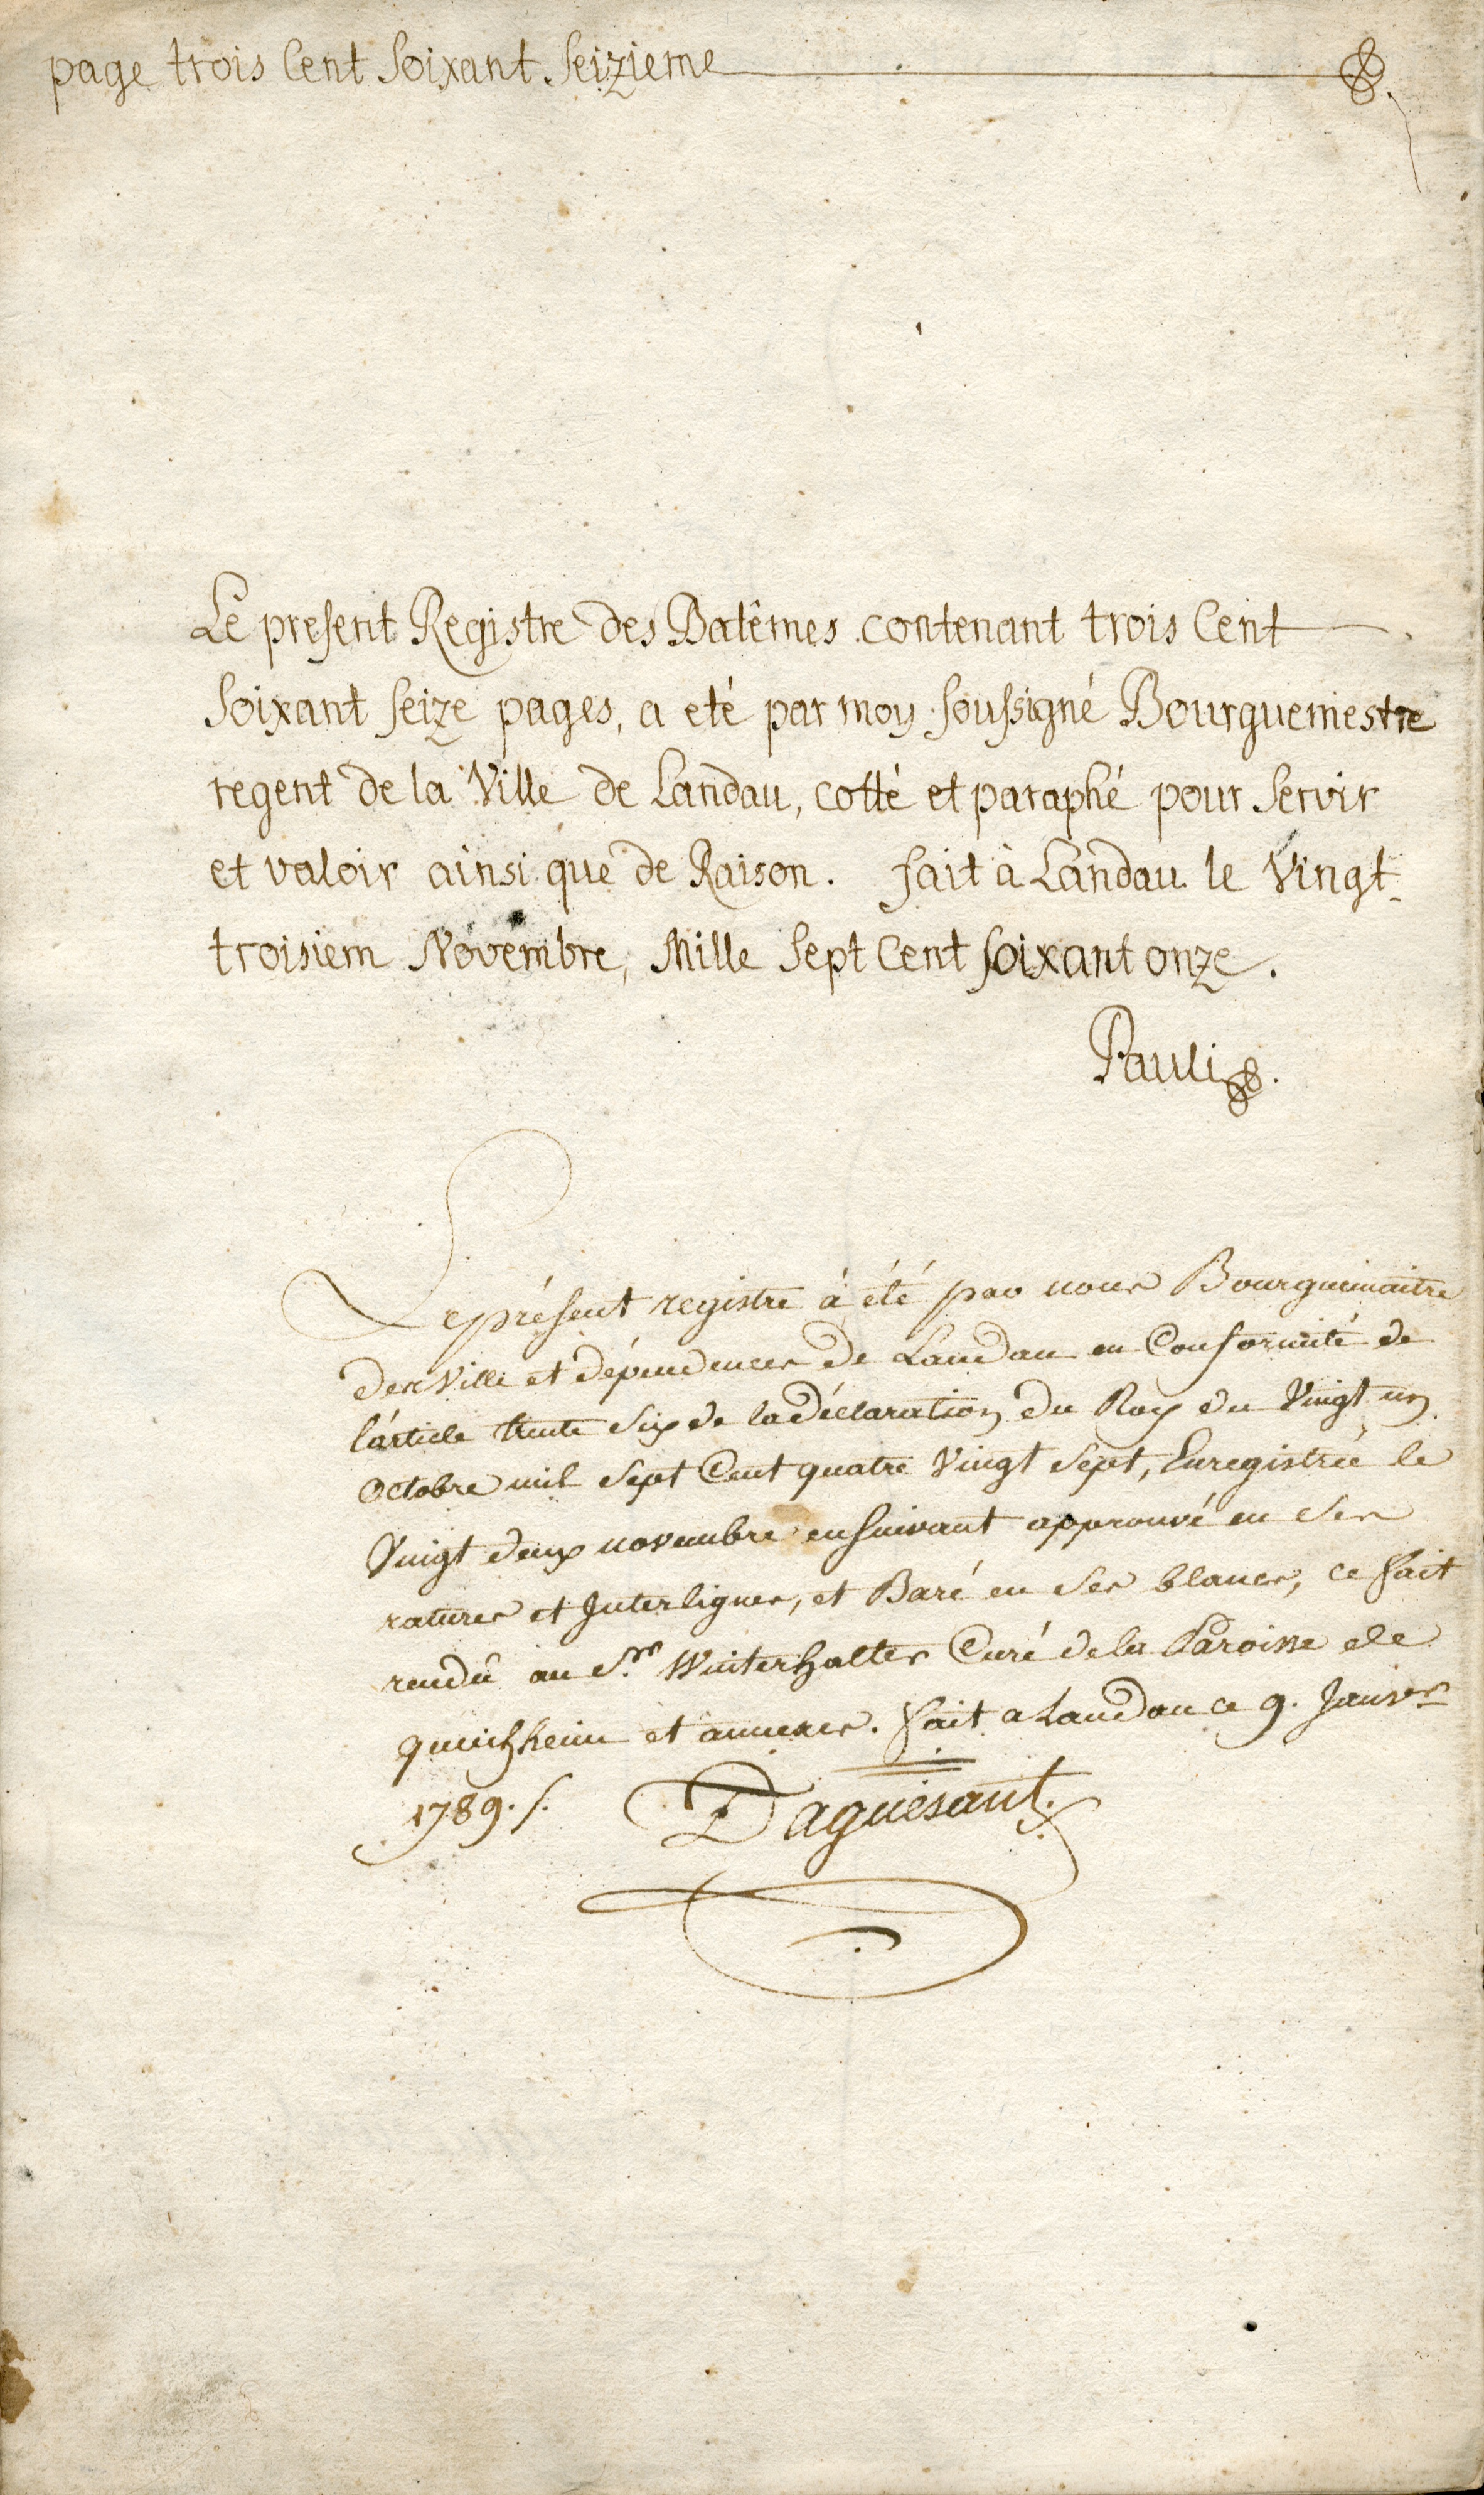 page trois Cent Soixant Seizieme
Le present Registre des Batêmes contenant trois Cent
Soixant Seize pages, a eté par moy soussigné Bourguemestre
regent de la Ville de Landau, cotté et paraphé pour Servir
et valoir ainsi que de Raison. fait à Landau le Vingt-
troisiem Novembre, Mille Sept Cent soixant onze.
Pauli
Le présent registre à été par nous Bourguemaitre
des Ville et dépendences de Landau en Conformité de
l'article trente Six de la déclaration du Roy du Vingt un
Octobre mil Sept Cent quatre Vingt Sept, Enregistrée le
Vingt deux novembre ensuivant approuvé en Ses
ratures et Interlignes, et Baré en Ses blancs, ce fait
rendû au Sr. Winterhalter Curé de la Paroisse de
queichheim et annexes. fait a Landau ce 9. Janver
1789. /. Daguesant.